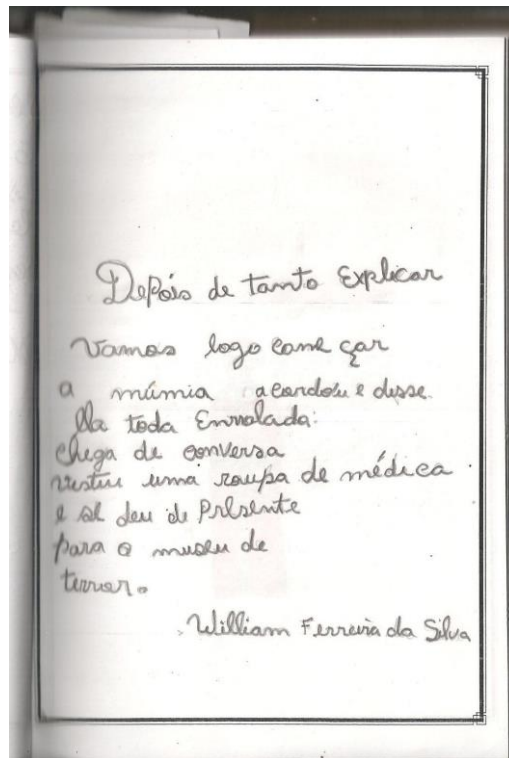 Depois de tanto Explicar
Vamos logo come çar
a múmia acordou e disse.
Ela toda Enrolada:
chega de conversa
vestiu uma roupa de médica
e se deu de Presente
para o museu de
terror.
William Ferreira da Silva